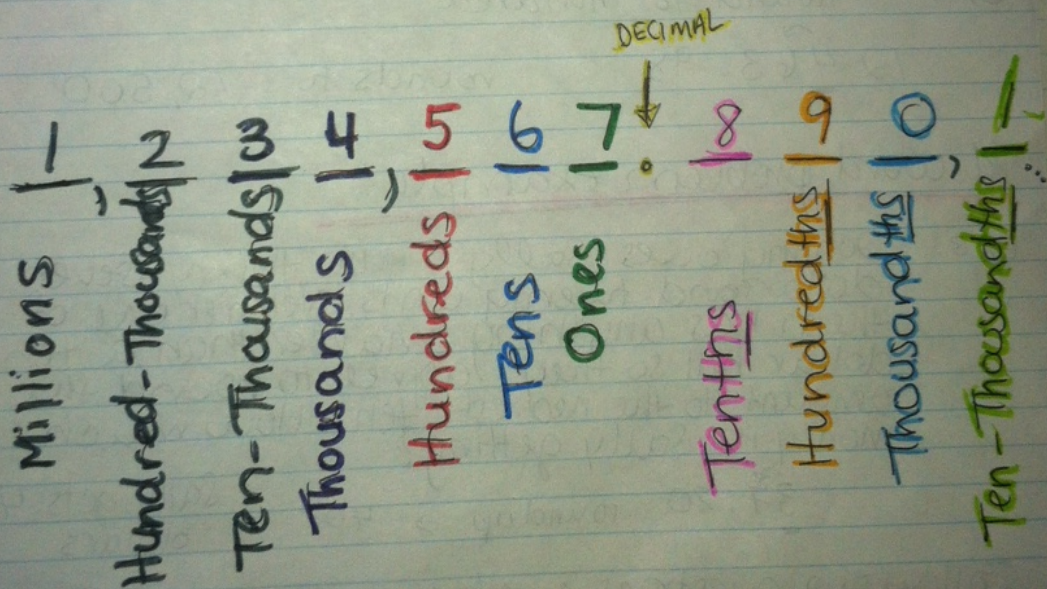 DECIMAL
1,234,567.890,1...
Millions
Hundred-Thousands
Ten-Thousands
Thousands
Hundreds
Tens
Ones
Tenths
Hundredths
Thousandths
Ten-Thousandths